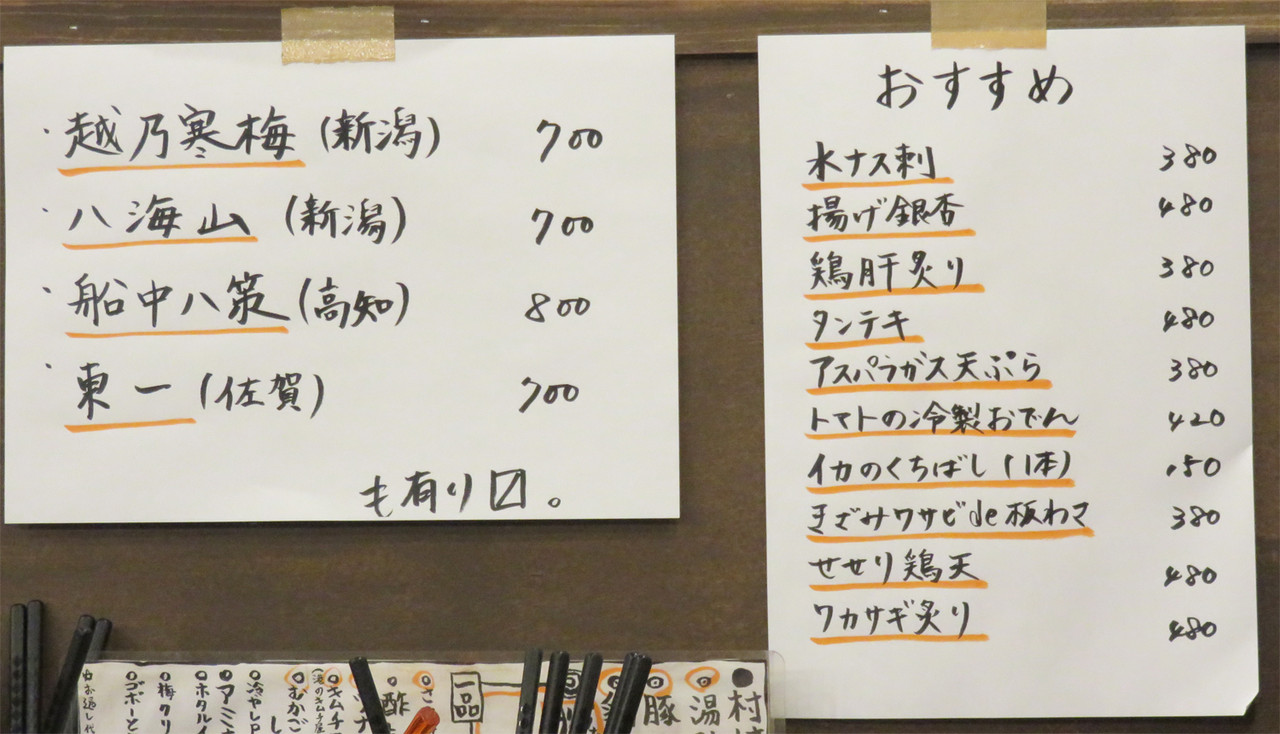 ・越乃寒梅(新潟) 700
・八海山(新潟) 700
・船中八策(高知) 800
・東一(佐賀) 700
も有り〼。
おすすめ
水ナス刺 380
揚げ銀杏 480
鶏肝炙り 380
タンテキ 480
アスパラガス天ぷら 380
トマトの冷製おでん 420
イカのくちばし(1本) 150
きざみワサビde板わさ 380
せせり鶏天 480
ワカサギ炙り 480
村
湯
豚
一品
酢
さ
キムチ
むかご
冷やしP
マアミ
ホタルイ
梅クリ
ゴボーと